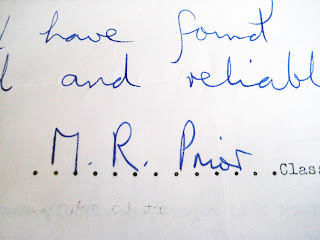 have found
and reliabl
M. R. Prior
..............Class